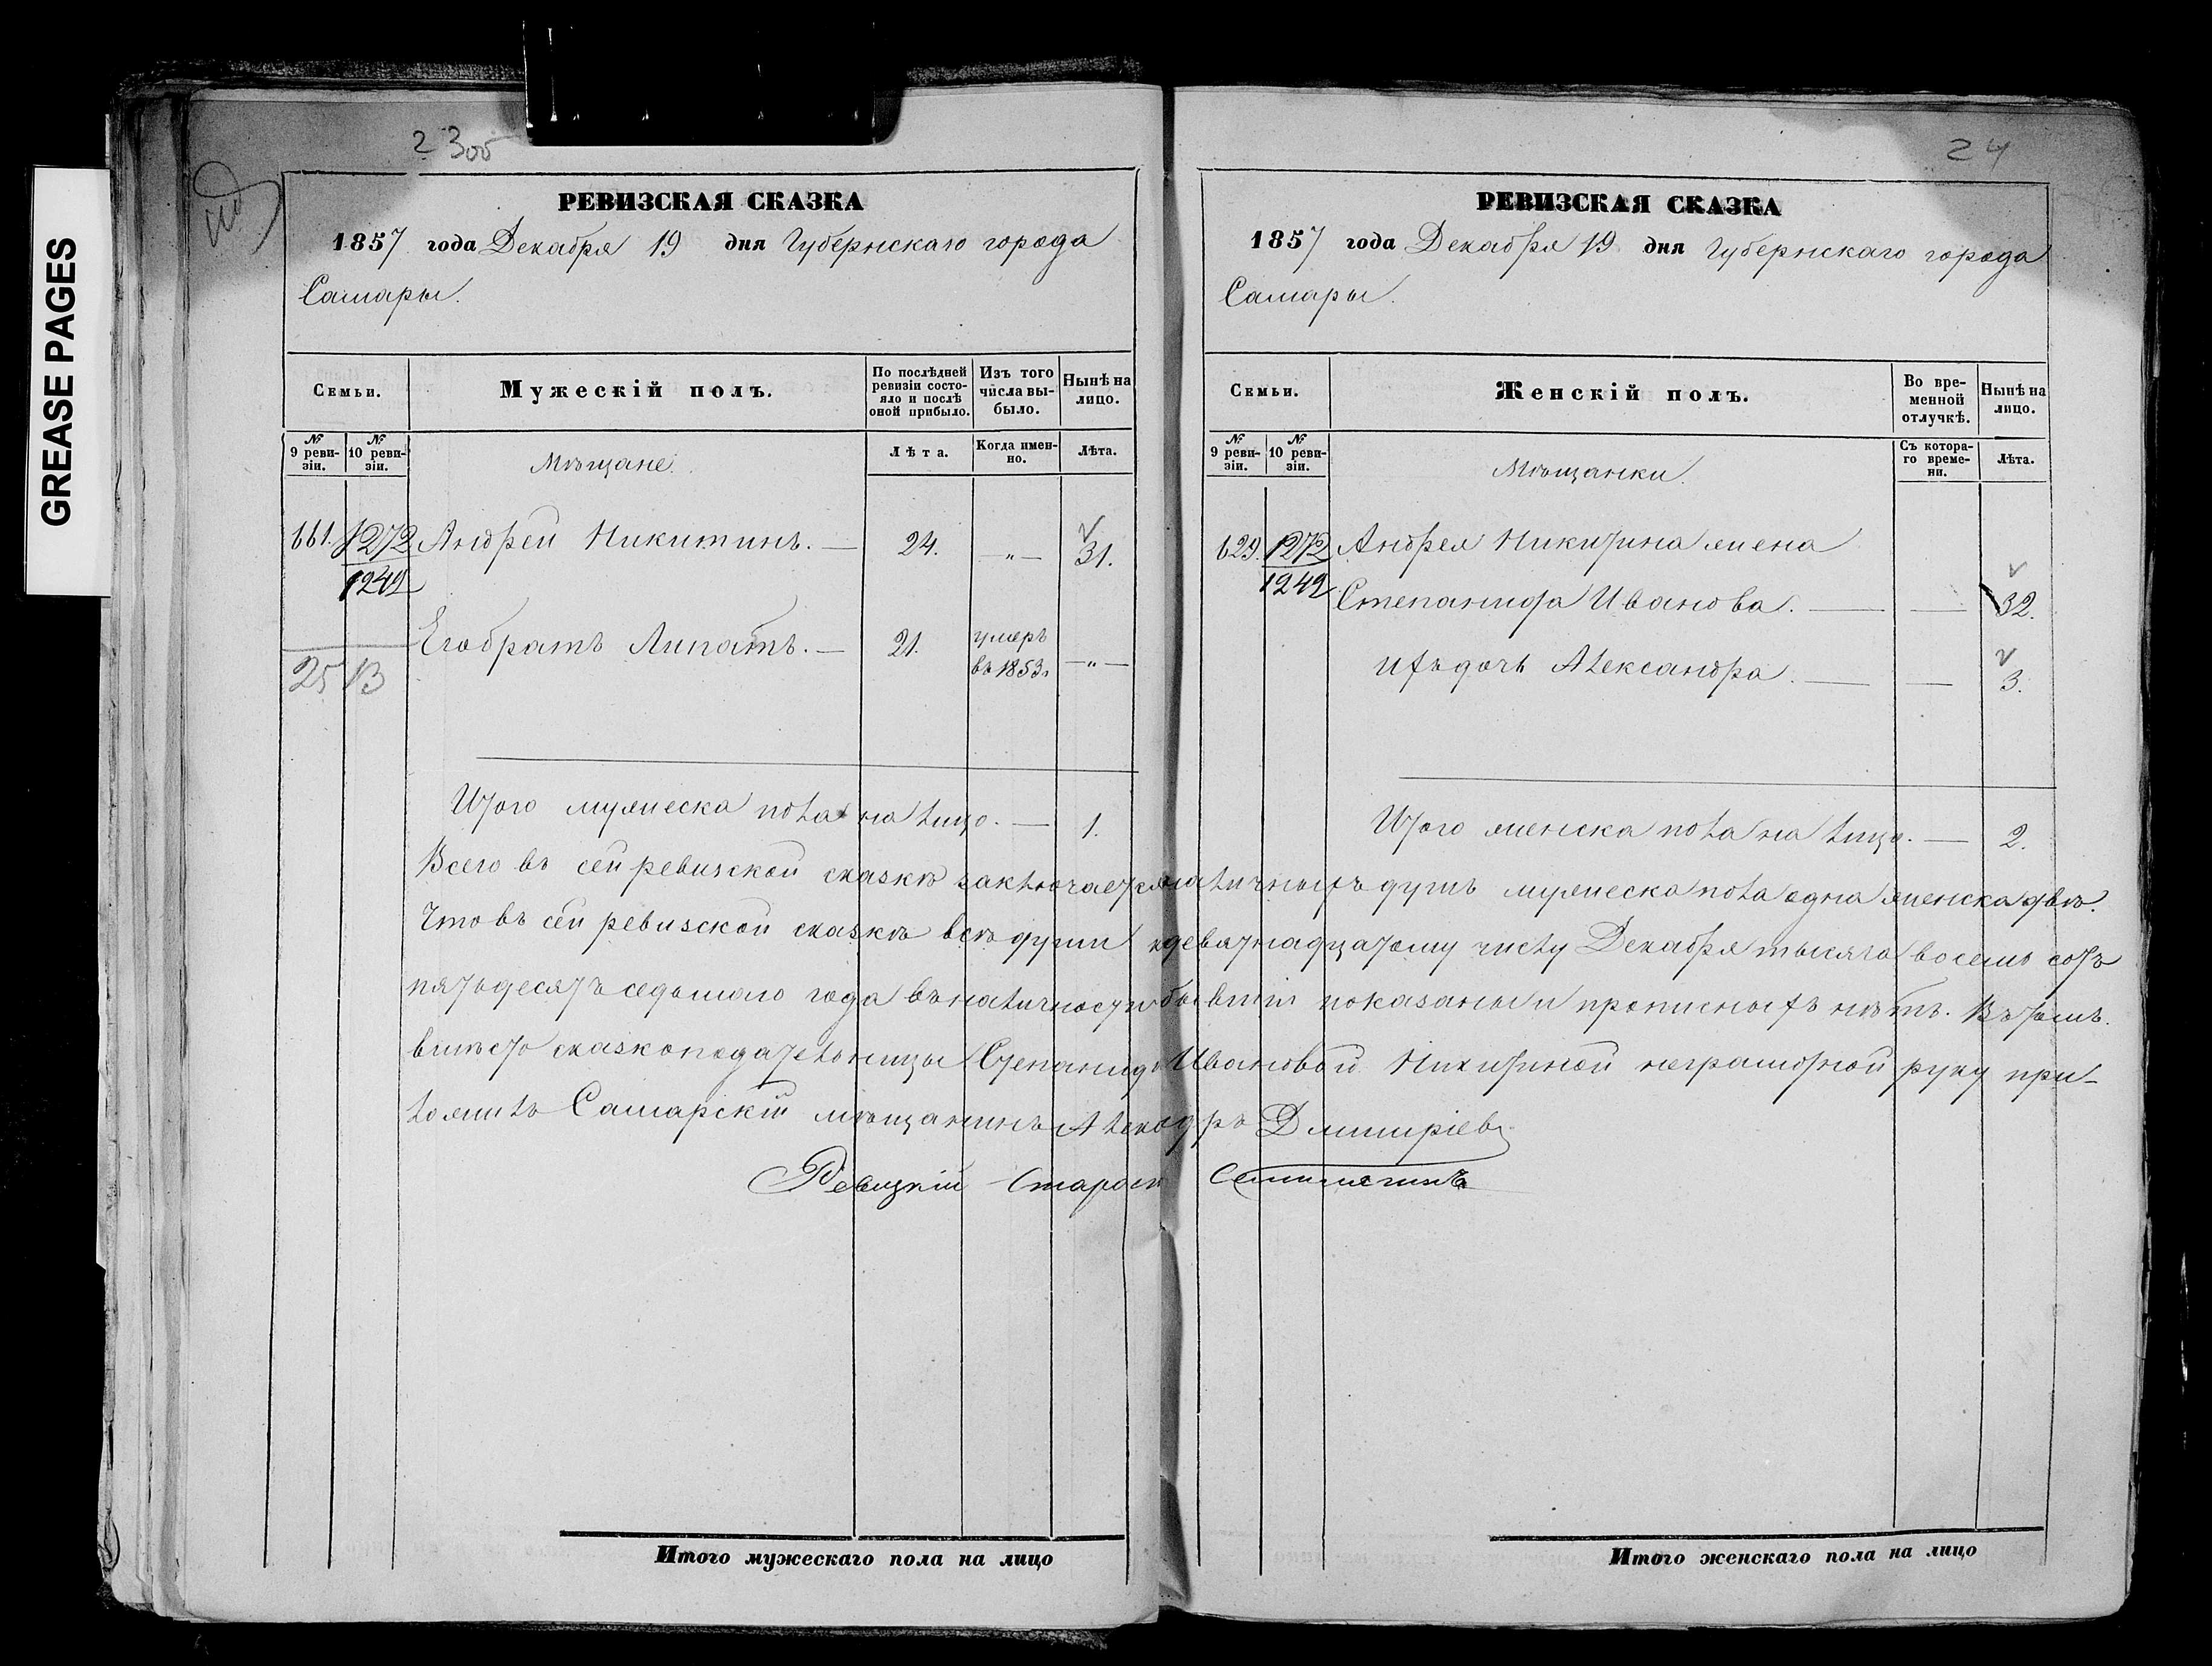 GREASE PAGES
23об
РЕВИЗСКАЯ СКАЗКА
1857 года Декабря 19 дня Губернскаго города
Самары.
Семьи.
Мужескій полъ.
По послѣдней ревизіи состояло и послѣ оной прибыло.
Изъ того числа выбыло.
Нынѣ на лицо.
№ 9 ревизіи.
№ 10 ревизіи.
Мѣщане.
Лѣта.
Когда именно.
Лѣта.
661. 1272 Андрей Никитинъ. — 24. —„— 31.
1242
Его братъ Липатъ. — 21. умеръ въ 1853 г. —„—
25 13
Итого мужеска пола на лицо. — 1.
24
РЕВИЗСКАЯ СКАЗКА
1857 года Декабря 19 дня Губернскаго города
Самары.
Семьи.
Женскій полъ.
Во временной отлучкѣ.
Нынѣ на лицо.
№ 9 ревизіи.
№ 10 ревизіи.
Мѣщанки.
Съ котораго времени.
Лѣта.
629. 1272 Андрея Никитина жена
1242 Степанида Иванова. — — 32.
ихъ дочь Александра. — — 3.
Итого женска пола на лицо. — 2.
Всего въ сей ревизской сказкѣ заключается наличныхъ душъ мужеска пола одна женска двѣ.
Что въ сей ревизской сказкѣ всѣ души к девятнадцатому числу Декабря тысяча восемь сотъ
пятьдесятъ седьмаго года въ наличности бывшія показаны и прописныхъ нѣтъ. Въ томъ.
вмѣсто сказкоподательницы Степаниды Ивановой Никитиной неграмотной руку при-
ложилъ Самарскій мѣщанинъ Дмитріевъ
Староста
Итого мужескаго пола на лицо
Итого женскаго пола на лицо